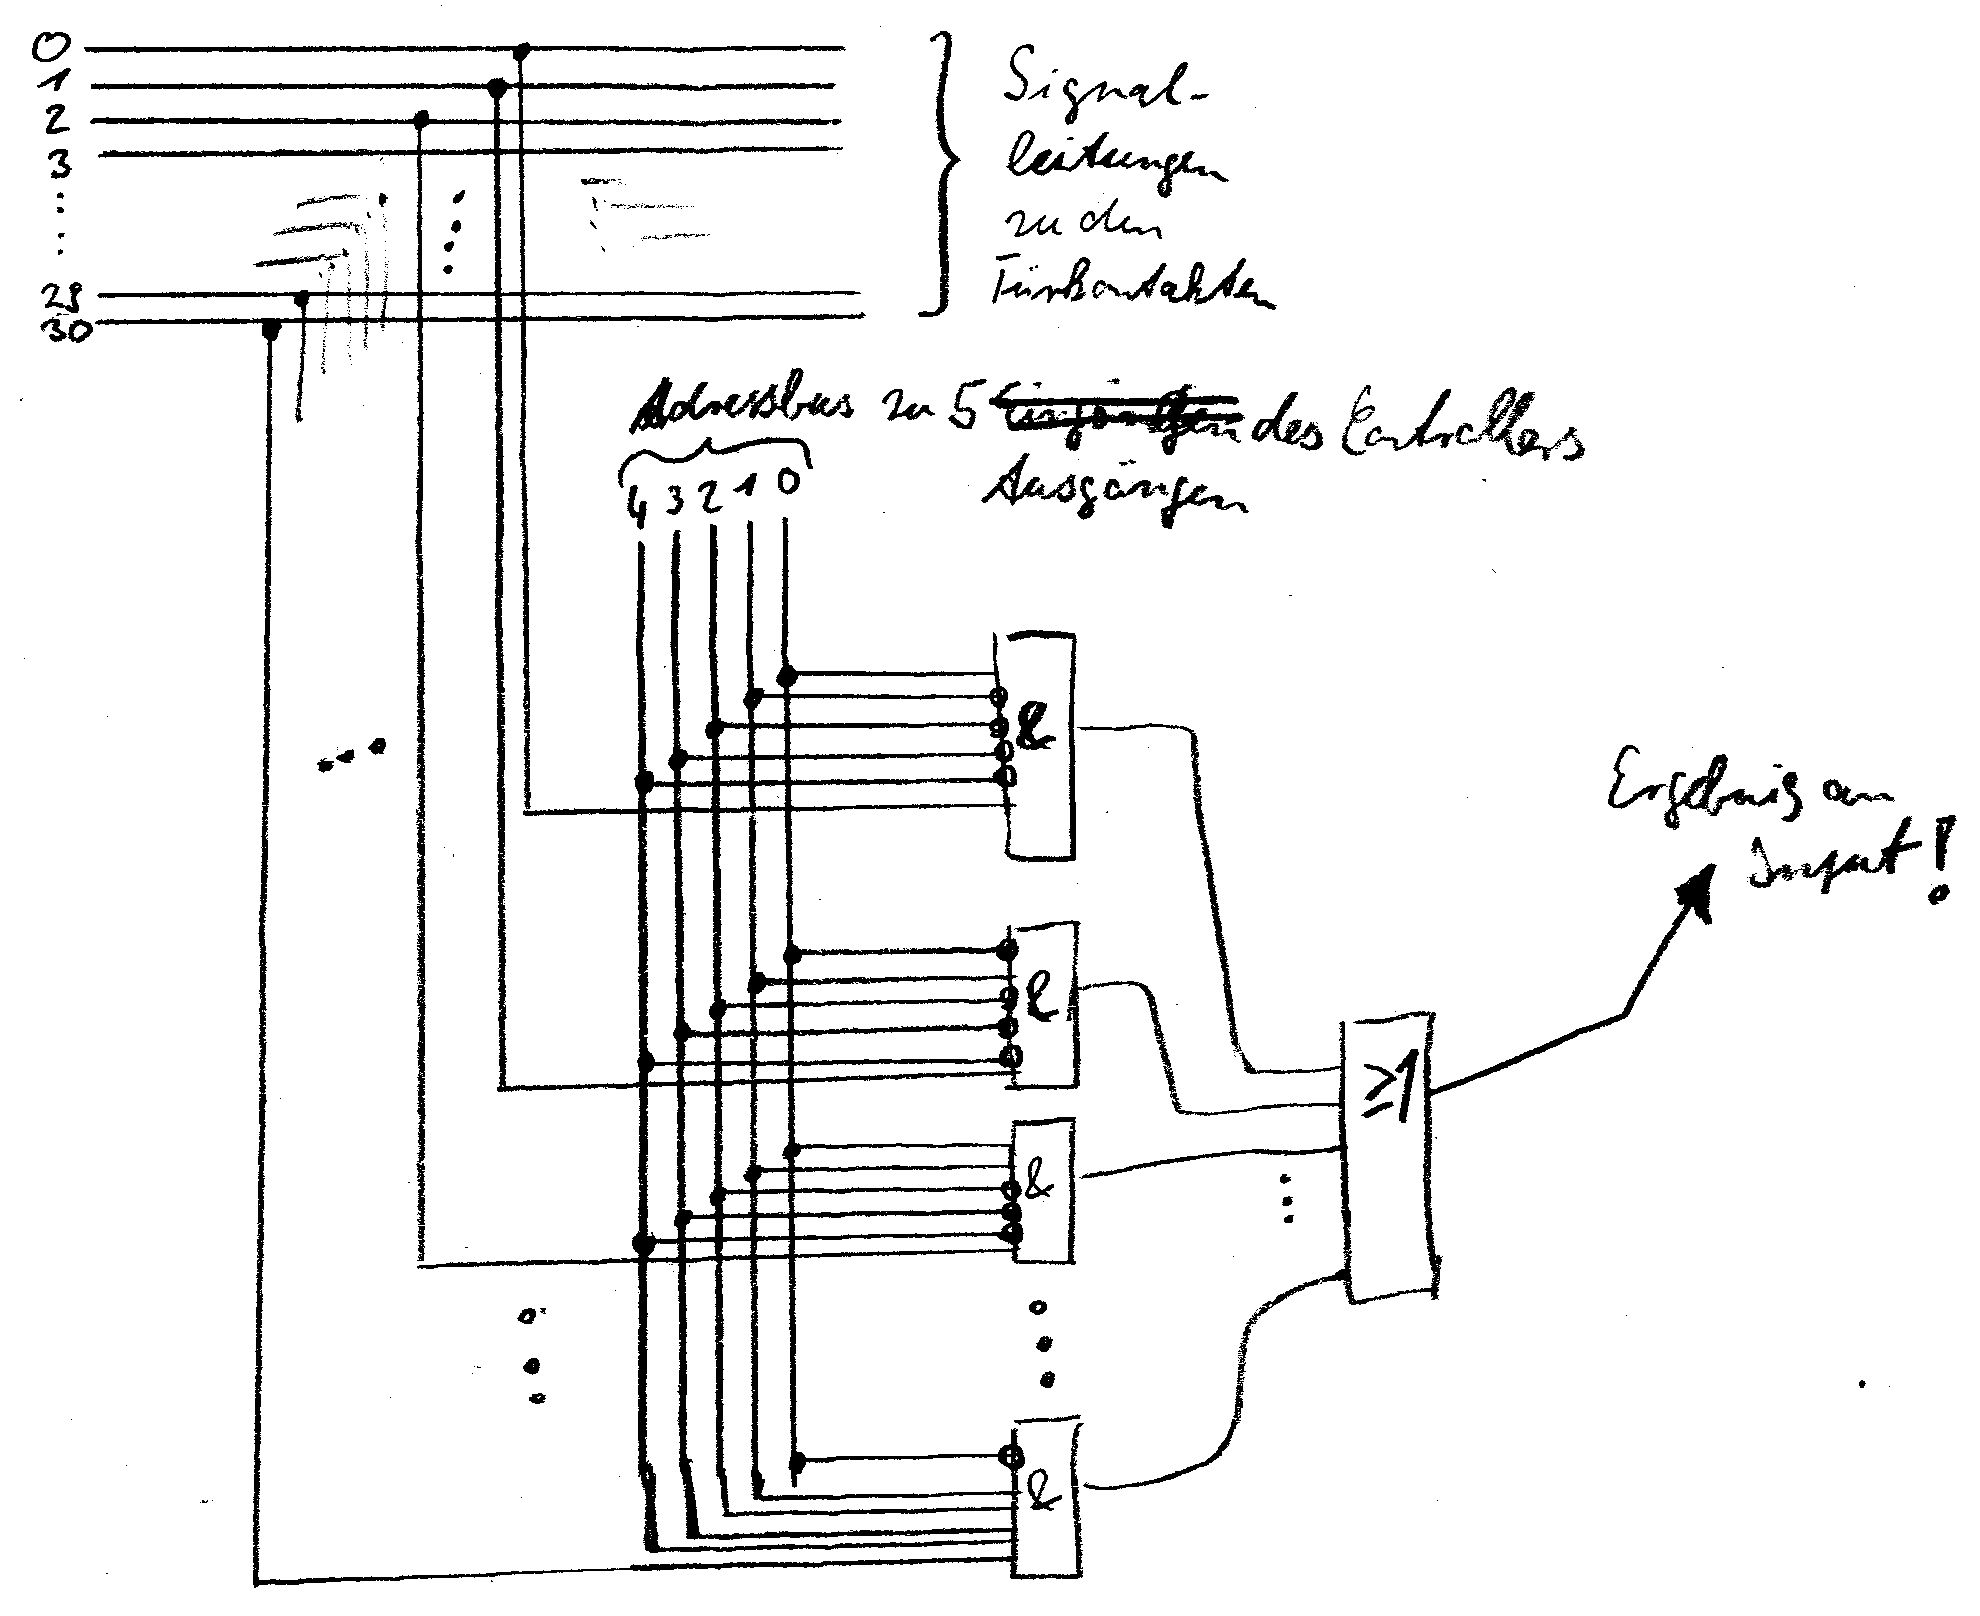 0
1
2
3
29
30
Signal-
leitungen
zu den
Türkontakten
Adressbus zu 5 Eingängen des Controllers
Ausgängen
4 3 2 1 0
&
&
&
&
≥1
Ergebnis an
Input!